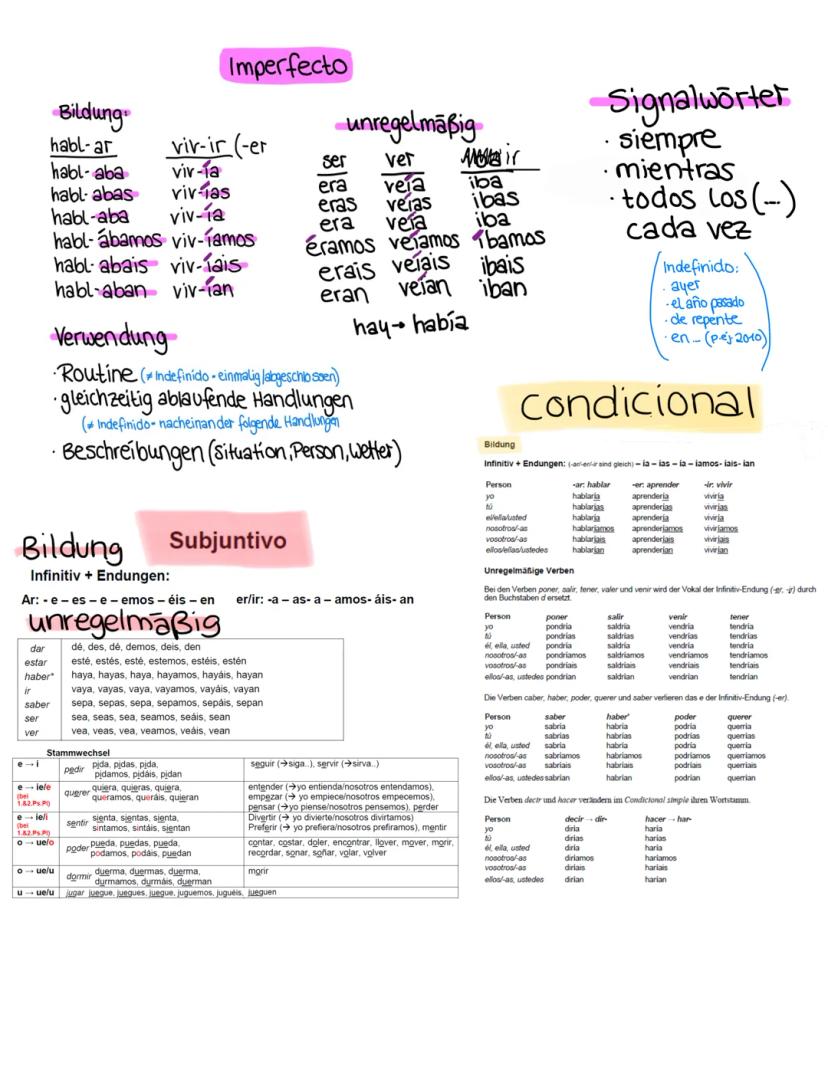 Imperfecto
Bildung:
habl-ar viv-ir (-er
habl-aba viv-ía
habl-abas viv-ías
habl-aba viv-ía
habl-ábamos viv-íamos
habl-abais viv-íais
habl-aban viv-ían
unregelmäßig
ser ver ir
era veía iba
eras veías ibas
era veía iba
éramos veíamos íbamos
erais veíais ibais
eran veían iban
hay→ había
Signalwörter
· siempre
· mientras
· todos los (...)
cada vez
Indefinido:
· ayer
· el año pasado
· de repente
· en ... (p.ej 2010)
Verwendung
· Routine (≠ Indefinido - einmalig/abgeschlossen)
· gleichzeitig ablaufende Handlungen
(≠ Indefinido- nacheinander folgende Handlungen
· Beschreibungen (Situation, Person, Wetter)
condicional
Bildung
Infinitiv + Endungen: (-ar/-er/-ir sind gleich) – ia – ias – ia – iamos- iais- ian
Person -ar: hablar -er: aprender -ir: vivir
yo hablaría aprendería viviría
tú hablarías aprenderías vivirías
el/ella/usted hablaría aprendería viviría
nosotros/-as hablaríamos aprenderíamos viviríamos
vosotros/-as hablaríais aprenderíais viviríais
ellos/ellas/ustedes hablarían aprenderían vivirían
Unregelmäßige Verben
Bei den Verben poner, salir, tener, valer und venir wird der Vokal der Infinitiv-Endung (-er, -ir) durch
den Buchstaben d ersetzt.
Person poner salir venir tener
yo pondría saldría vendría tendría
tú pondrías saldrías vendrías tendrías
él, ella, usted pondría saldría vendría tendría
nosotros/-as pondríamos saldríamos vendríamos tendríamos
vosotros/-as pondríais saldríais vendríais tendríais
ellos/-as, ustedes pondrían saldrían vendrían tendrían
Die Verben caber, haber, poder, querer und saber verlieren das e der Infinitiv-Endung (-er).
Person saber haber* poder querer
yo sabría habría podría querría
tú sabrías habrías podrías querrías
él, ella, usted sabría habría podría querría
nosotros/-as sabríamos habríamos podríamos querríamos
vosotros/-as sabríais habríais podríais querríais
ellos/-as, ustedes sabrían habrían podrían querrían
Die Verben decir und hacer verändern im Condicional simple ihren Wortstamm.
Person decir → dir- hacer → har-
yo diría haría
tú dirías harías
él, ella, usted diría haría
nosotros/-as diríamos haríamos
vosotros/-as diríais haríais
ellos/-as, ustedes dirían harían
Subjuntivo
Bildung
Infinitiv + Endungen:
Ar: - e – es – e – emos – éis – en er/ir: -a – as- a – amos- áis- an
unregelmäßig
dar dé, des, dé, demos, deis, den
estar esté, estés, esté, estemos, estéis, estén
haber* haya, hayas, haya, hayamos, hayáis, hayan
ir vaya, vayas, vaya, vayamos, vayáis, vayan
saber sepa, sepas, sepa, sepamos, sepáis, sepan
ser sea, seas, sea, seamos, seáis, sean
ver vea, veas, vea, veamos, veáis, vean
Stammwechsel
e → i pedir pida, pidas, pida, seguir (→siga..), servir (→sirva..)
pidamos, pidáis, pidan
e → ie/e querer quiera, quieras, quiera, entender (→yo entienda/nosotros entendamos),
(bei queramos, queráis, quieran empezar (→ yo empiece/nosotros empecemos),
1.&2.Ps.Pl) pensar (→yo piense/nosotros pensemos), perder
e → ie/i sentir sienta, sientas, sienta, Divertir (→ yo divierte/nosotros divirtamos)
(bei sintamos, sintáis, sientan Preferir (→ yo prefiera/nosotros prefiramos), mentir
1.&2.Ps.Pl)
o → ue/o poder pueda, puedas, pueda, contar, costar, doler, encontrar, llover, mover, morir,
podamos, podáis, puedan recordar, sonar, soñar, volar, volver
o → ue/u dormir duerma, duermas, duerma, morir
durmamos, durmáis, duerman
u → ue/u jugar juegue, juegues, juegue, juguemos, juguéis, jueguen